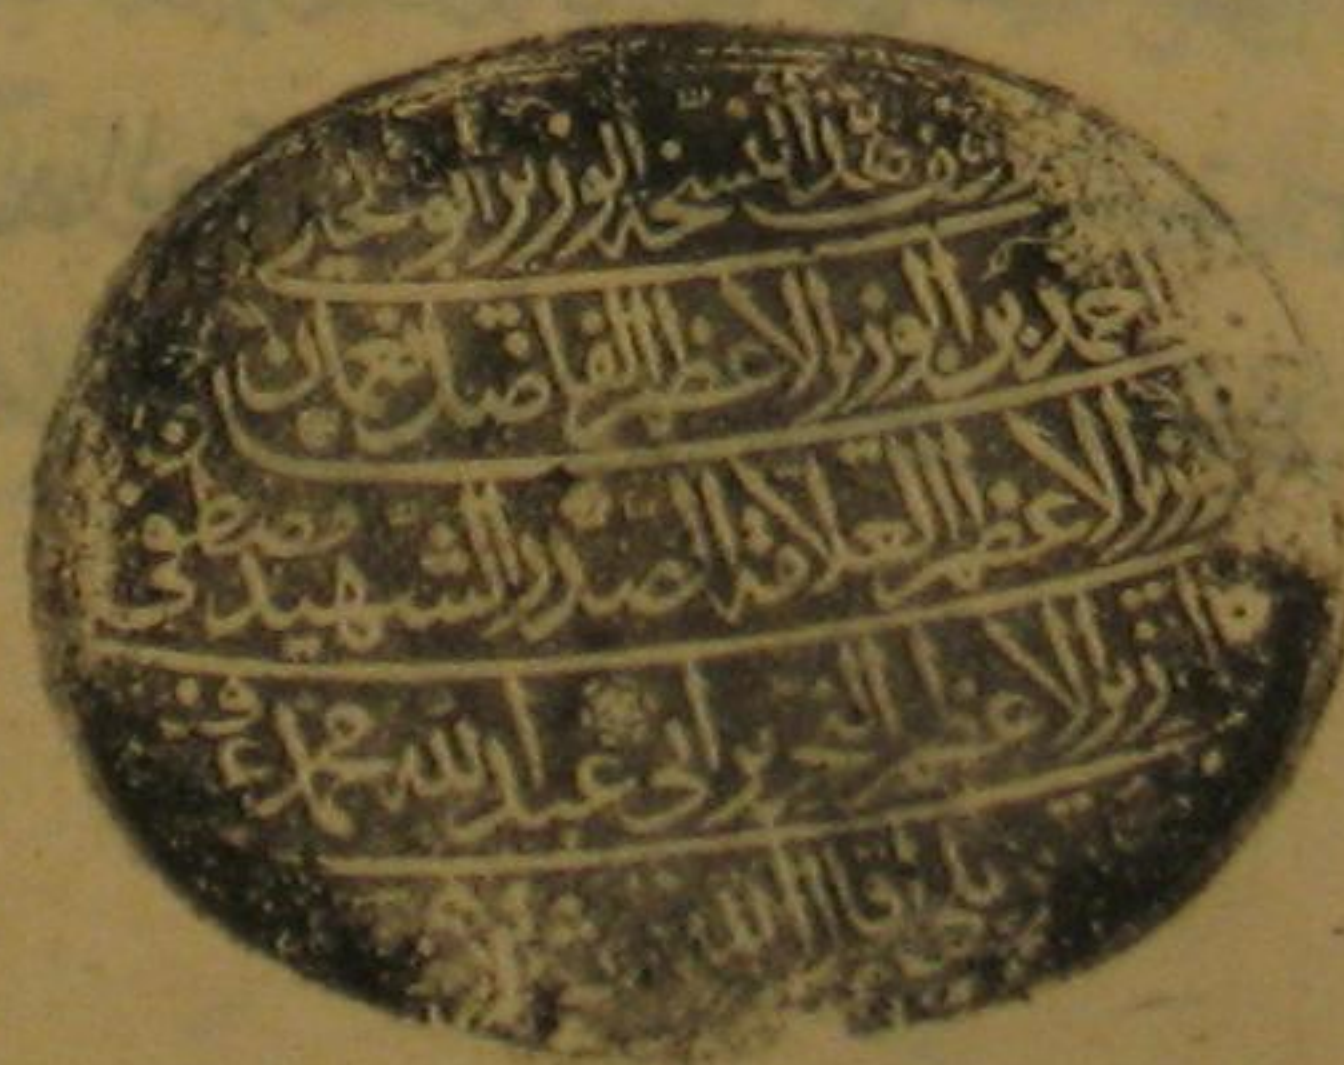 وقف هذه النسخة الوزير ابو الخير
احمد بن الوزير الاعظم الفاضل نعمان بن
الوزير الاعظم العلامة الصدر الشهيد مصطفى بن
الوزير الاعظم النحرير ابي عبد الله محمد عرف
اقال الله